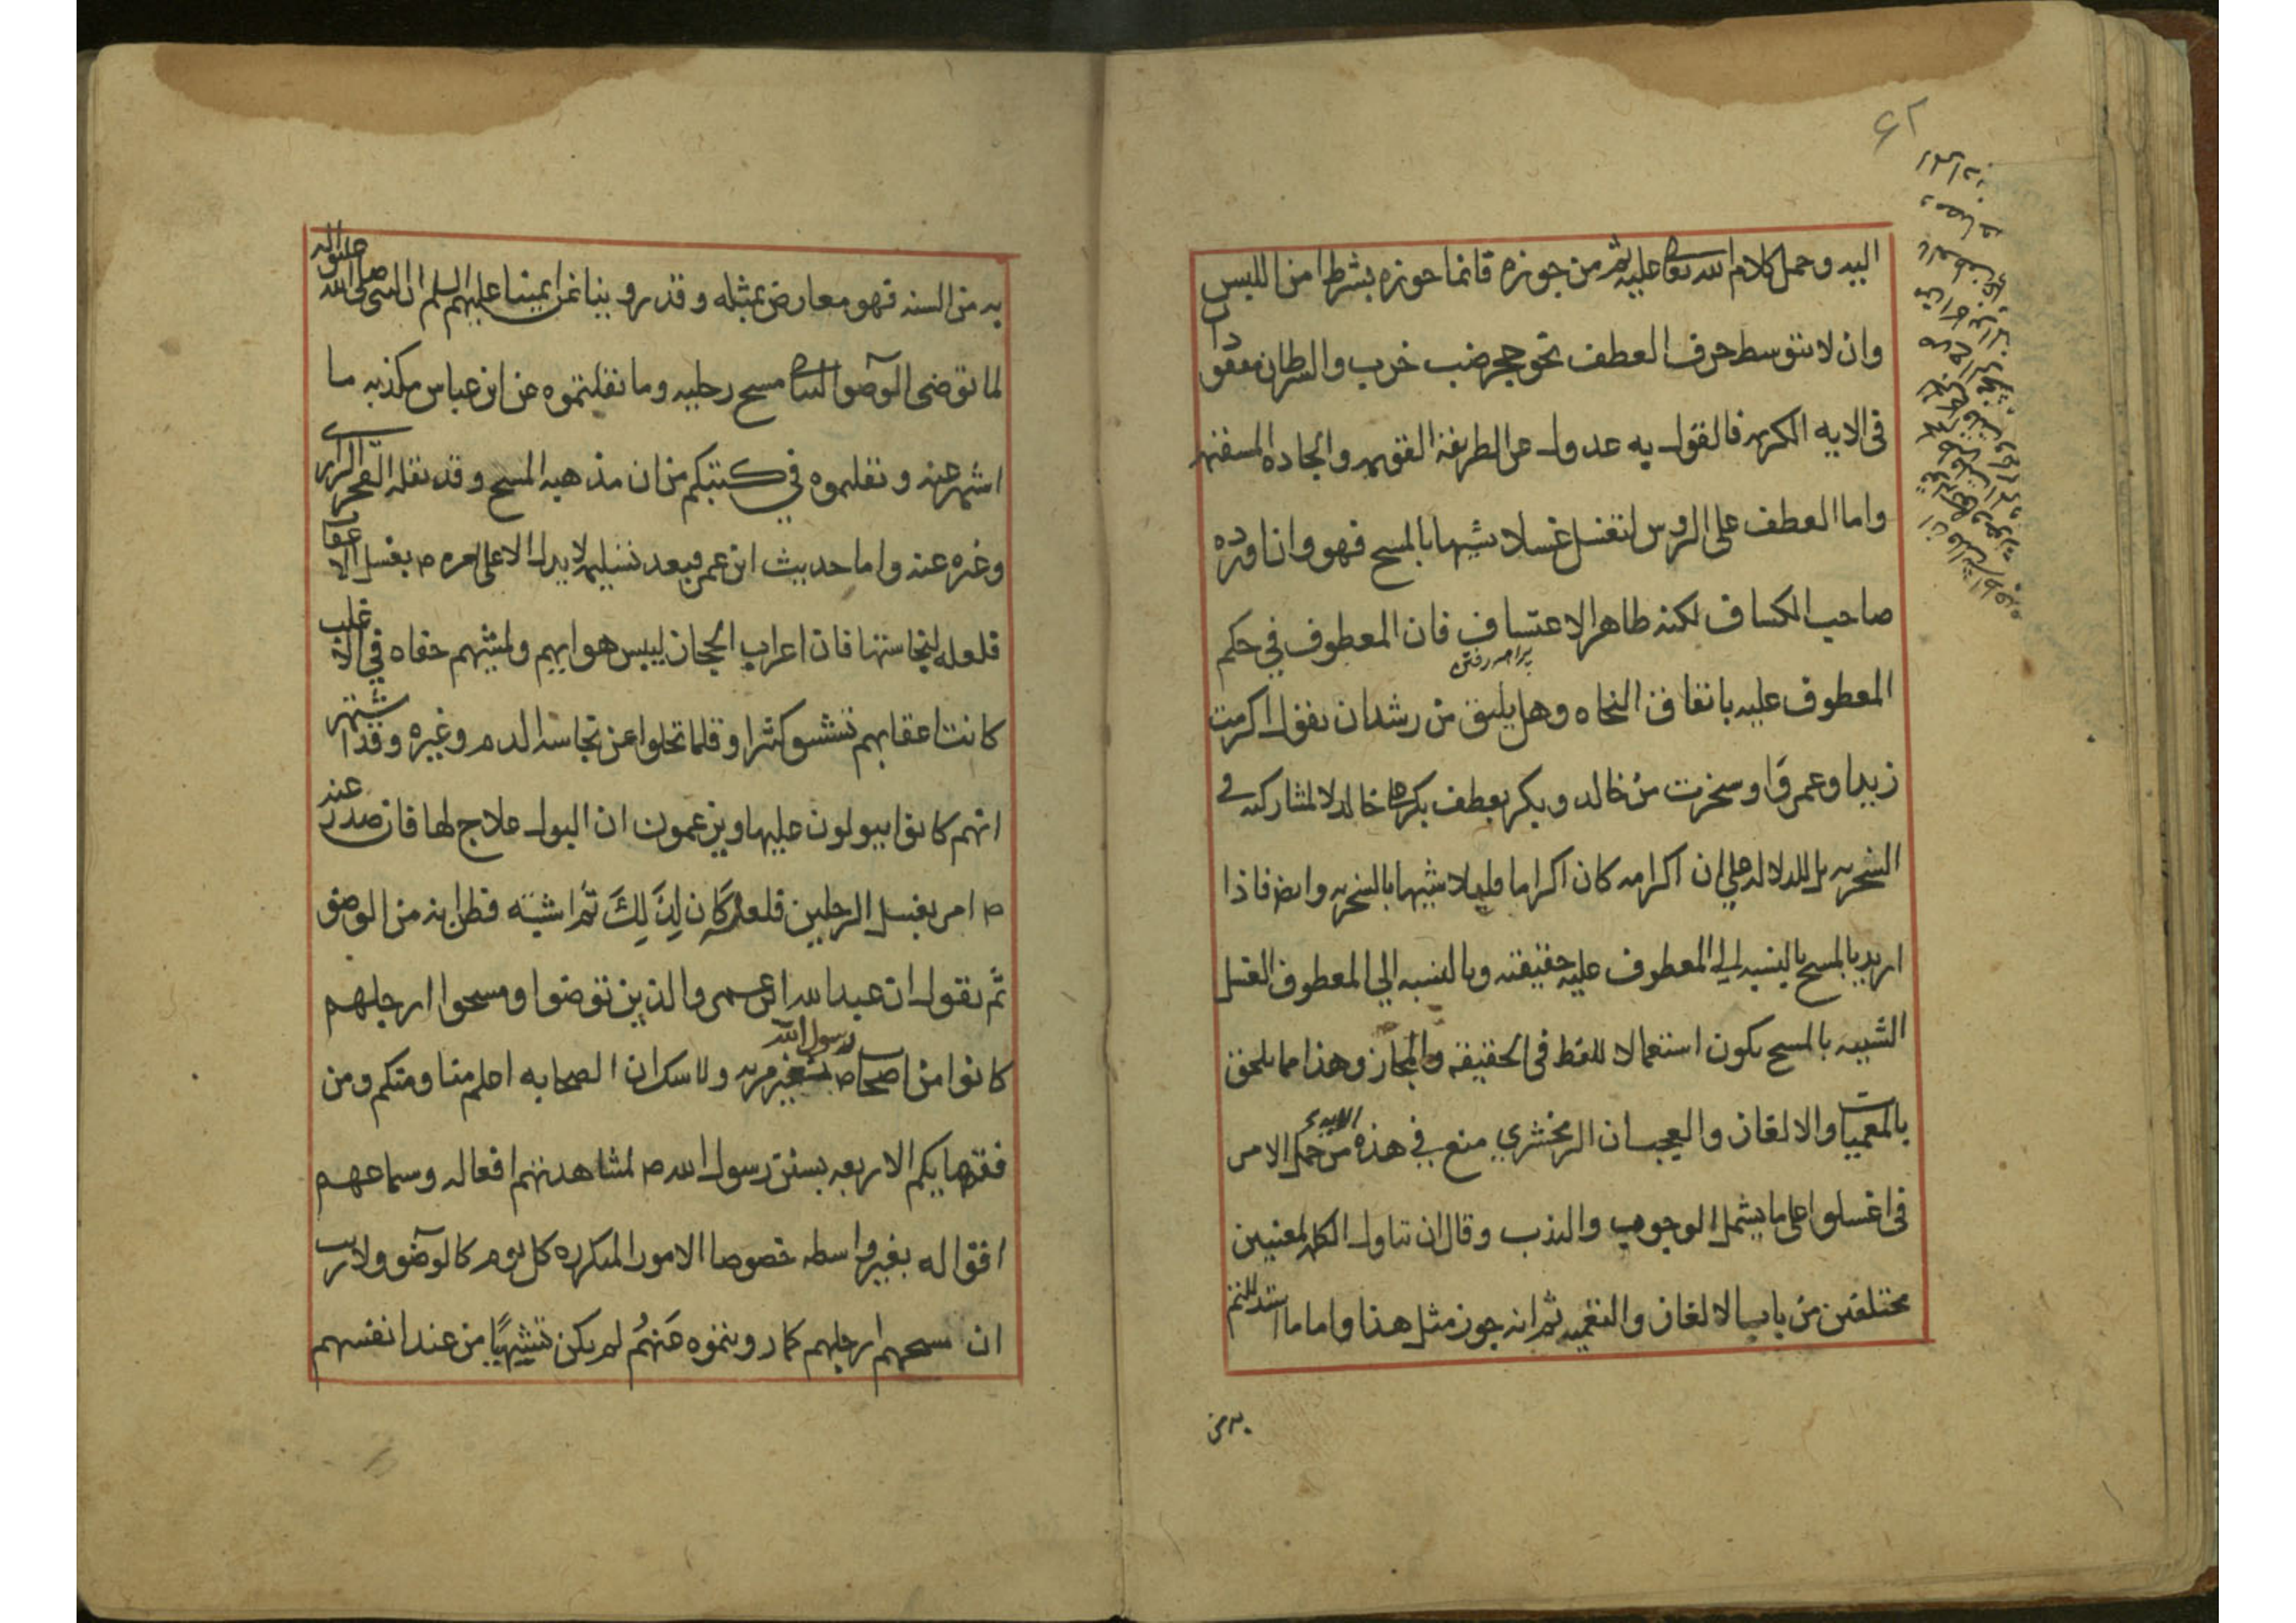 اليه وحمل كلام الله تعالى عليه ثم من جوزه فانما جوزه بشرط امن اللبس
وان لا يتوسط حرف العطف نحو حجر ضب خرب والشرطان مفقودان
في الايه الكريمه فالقول به عدول عن الطريقة القويمه والجاده المستقيمه
واما العطف على الروس لتغسل غسلا شبيها بالمسح فهو وان اورده
صاحب الكشاف لكنه ظاهر الاعتساف فان المعطوف في حكم
المعطوف عليه باتفاق النحاه وهل يليق من رشد ان يقول اكرمت
زيدا وعمروا وسخرت من خالد وبكر بعطف بكر على خالد لا لمشاركته في
السخريه بل للدلاله على ان اكرامه كان اكراما قليلا شبيها بالسخريه وايضا فاذا
اريد بالمسح بالنسبه الى المعطوف عليه حقيقته وبالنسبه الى المعطوف الغسل
الشبيه بالمسح يكون استعمالا للفظ في الحقيقه والمجاز وهذا مما يلحق
بالمعميات والالغاز والعجب ان الزمخشري منع في هذه الايه من حمل الامر
في اغسلوا على ما يشمل الوجوب والندب وقال ان تناول الكلمه لمعنيين
مختلفين من باب الالغاز والتعميه ثم انه جوز مثل هذا واما ما استدللتم
به من
به من السنه فهو معارض بمثله وقد روينا عن ايمتنا عليهم السلم ان النبي صلى الله عليه واله
لما توضى الوضوء البياني مسح رجليه وما نقلتموه عن ابن عباس يكذبه ما
اشتهر عنه ونقلتموه في كتبكم من ان مذهبه المسح وقد نقله الفخر الرازي
وغيره عنه واما حديث ابن عمر فبعد تسليمه لا يدل الا على امره ص بغسل الاعقاب
فلعله لنجاستها فان اعراب الحجاز ليبس هوايهم ولمشيهم حفاه في الاغلب
كانت اعقابهم تنشق كثيرا وقلما تخلوا عن نجاسه الدم وغيره وقد اشتهر
انهم كانوا يبولون عليها ويزعمون ان البول علاج لها فان صدر عنه
ص امر بغسل الرجلين فلعله كان لذلك ثم اشتبه فظن انه من الوضوء
ثم نقول ان عبد الله ابن عمر والذين توضوا ومسحوا ارجلهم
كانوا من اصحاب رسول الله ص بغير مريه ولا شك ان الصحابه اعلم منا ومنكم ومن
فقهايكم الاربعه بسنن رسول الله ص لمشاهدتهم افعاله وسماعهم
اقواله بغير واسطه خصوصا الامور المتكرره كل يوم كالوضوء ولا ريب
ان مسحهم ارجلهم كما رويتموه عنهم لم يكن تشهيا من عند انفسهم